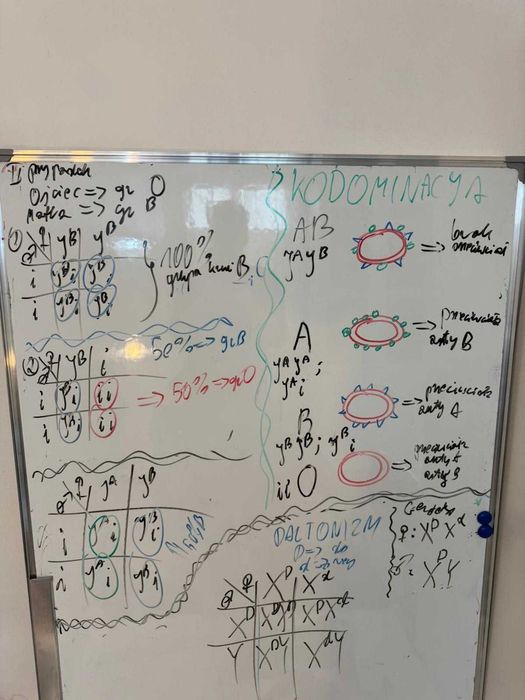 II przypadek
Ojciec => gr O
Matka => gr B
① ♀ yB yB
♂
i yBi yBi
i yBi yBi
100%
grupa krwi B
50% => grB
② ♀ yB i
♂
i yBi ii
i yBi ii
=> 50% => grO
♀ yA yB
♂
i yAi yBi
i yAi yBi
50% B
KODOMINACJA
AB
yA yB
=> brak
przeciwciał
A
yA yA;
yA i
=> przeciwciała
anty B
B
yB yB; yB i
=> przeciwciała
anty A
ii O
=> przeciwciała
anty A
anty B
DALTONIZM
D =>
d =>
♂ ♀ XD Xd
XD XDXD XDXd
Y XDY XdY
♀: XD Xd
♂: XD Y